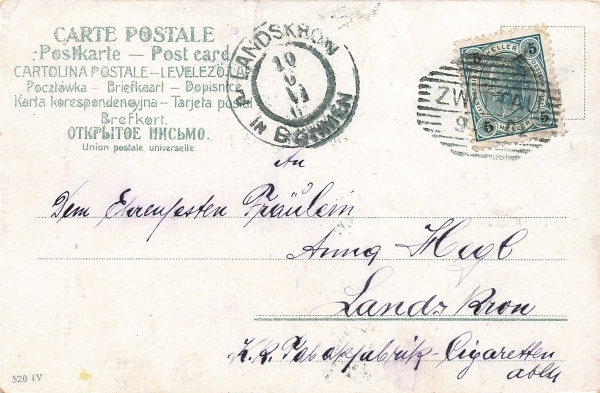 CARTE POSTALE
Postkarte — Post card
CARTOLINA POSTALE — LEVELEZŐ
Pocztówka — Briefkaart — Dopisnic
Karta korespondencyjna — Tarjeta pos
Brefkort.
ОТКРЫТОЕ ПИСЬМО.
Union postale universelle
LANDSKRON
in BÖHMEN
HELLER
5
5
5
5
HELLER
ZW
9
An
Dem Ehrenfesten Fräulein
Anna Hegl
Landskron
K. K. Tabakfabrik-Cigaretten
abth
520 IV